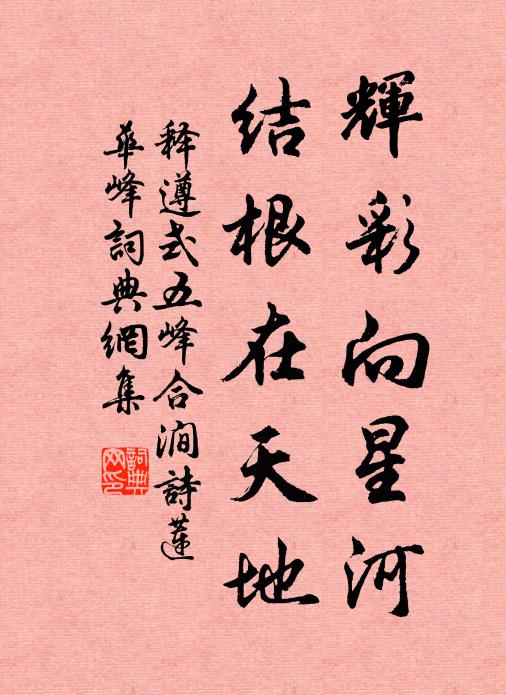 輝彩向星河
结根在天地
释遵式五峰合涧詩蓮
華峰詞典網集
詞典網印